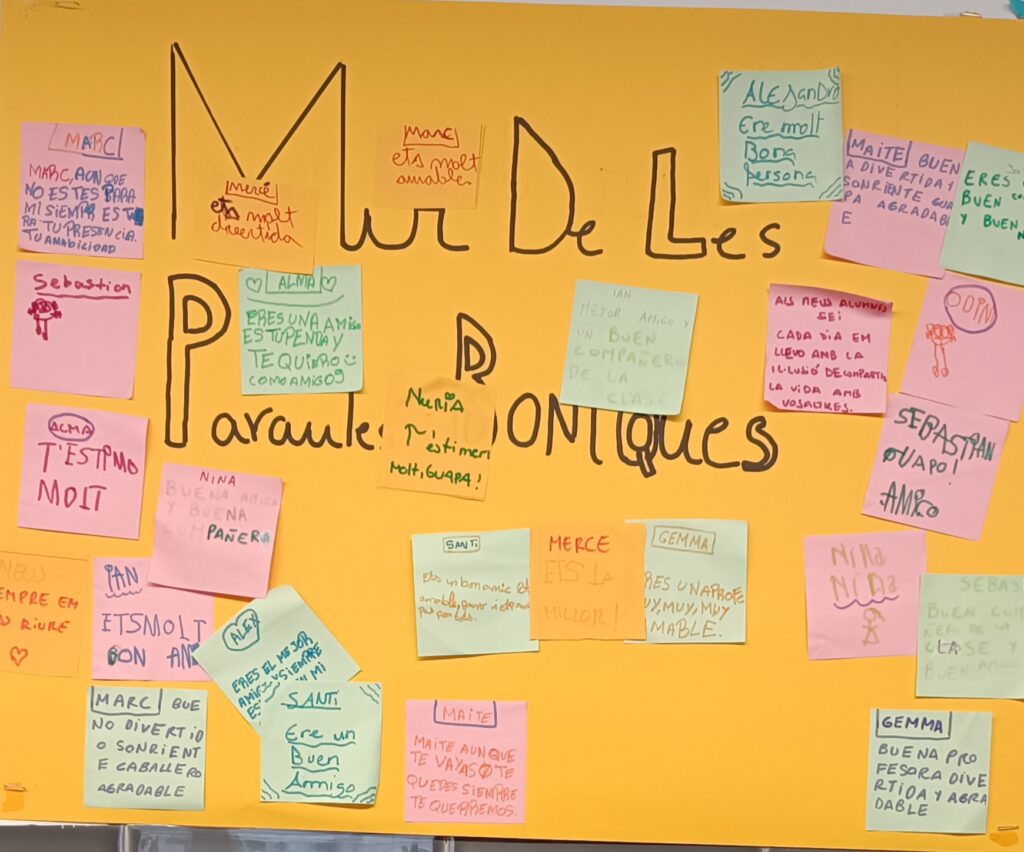 Mur De Les
Paraules BONIQues
MARC
MARC, AUNQUE
NO ESTES PARA
MI SIEMPR ESTA
RA TU PRESENCIA.
TU AMABILIDAD
Mercè
ets molt
divertida
Marc
ets molt
amable
ALEsanDro
Ere molt
Bona
Persona
MAITE BUEN
A DIVERTIDA Y
SONRIENTE GUA
PA AGRADABL
E
ERES
BUEN
Y BUEN
Sebastian
ALMA
ERES UNA AMIGA
ESTUPENDA Y
TE QUIERO
COMO AMIGOS
IAN
MEJOR AMIGO Y
UN BUEN
COMPAÑERO
DE LA
CLASE
ALS MEUS ALUMNES
SEI
CADA DIA EM
LLEVO AMB LA
IL·LUSIÓ DE COMPARTIR
LA VIDA AMB
VOSALTRES.
ODIN
NURIA
T'estimem
MOLT, GUAPA!
ALMA
T'ESTIMO
MOLT
NINA
BUENA AMIGA
Y BUENA
COMPAÑERA
SEBASTIAN
GUAPO!
AMIGO
NEUS
EMPRE EM
RIURE
IAN
ETS MOLT
BON AMI
ALEX
ERES EL MEJOR
AMIGO Y SIEMPRE
EN MI
SANTI
Ets un bon amic Ets
amable,
per tots.
MERCE
ETS LA
MILLOR!
GEMMA
RES UNA PROFE
UY, MUY, MUY
MABLE.
NiNa
NiNa
SEBAS
BUEN COM
ÑER DE LA
CLASE Y
BUEN AMIGO
MARC BUE
NO DIVERTID
O SONRIENT
E CABALLERO
AGRADABLE
SANTI
Ere un
Buen
Amigo
MAITE
MAITE AUNQUE
TE VAYAS O TE
QUEDES SIEMPRE
TE QUERREMOS.
GEMMA
BUENA PRO
FESORA DIVE
RTIDA Y AGRA
DABLE